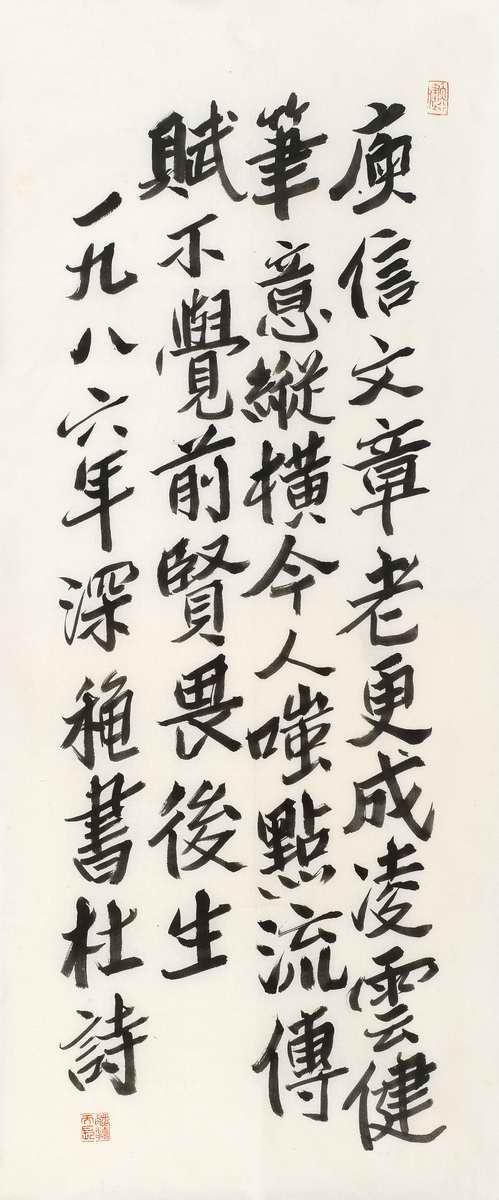 庾信文章老更成凌雲健
筆意縱橫今人嗤點流傳
賦不覺前賢畏後生
一九八六年深秋書杜詩